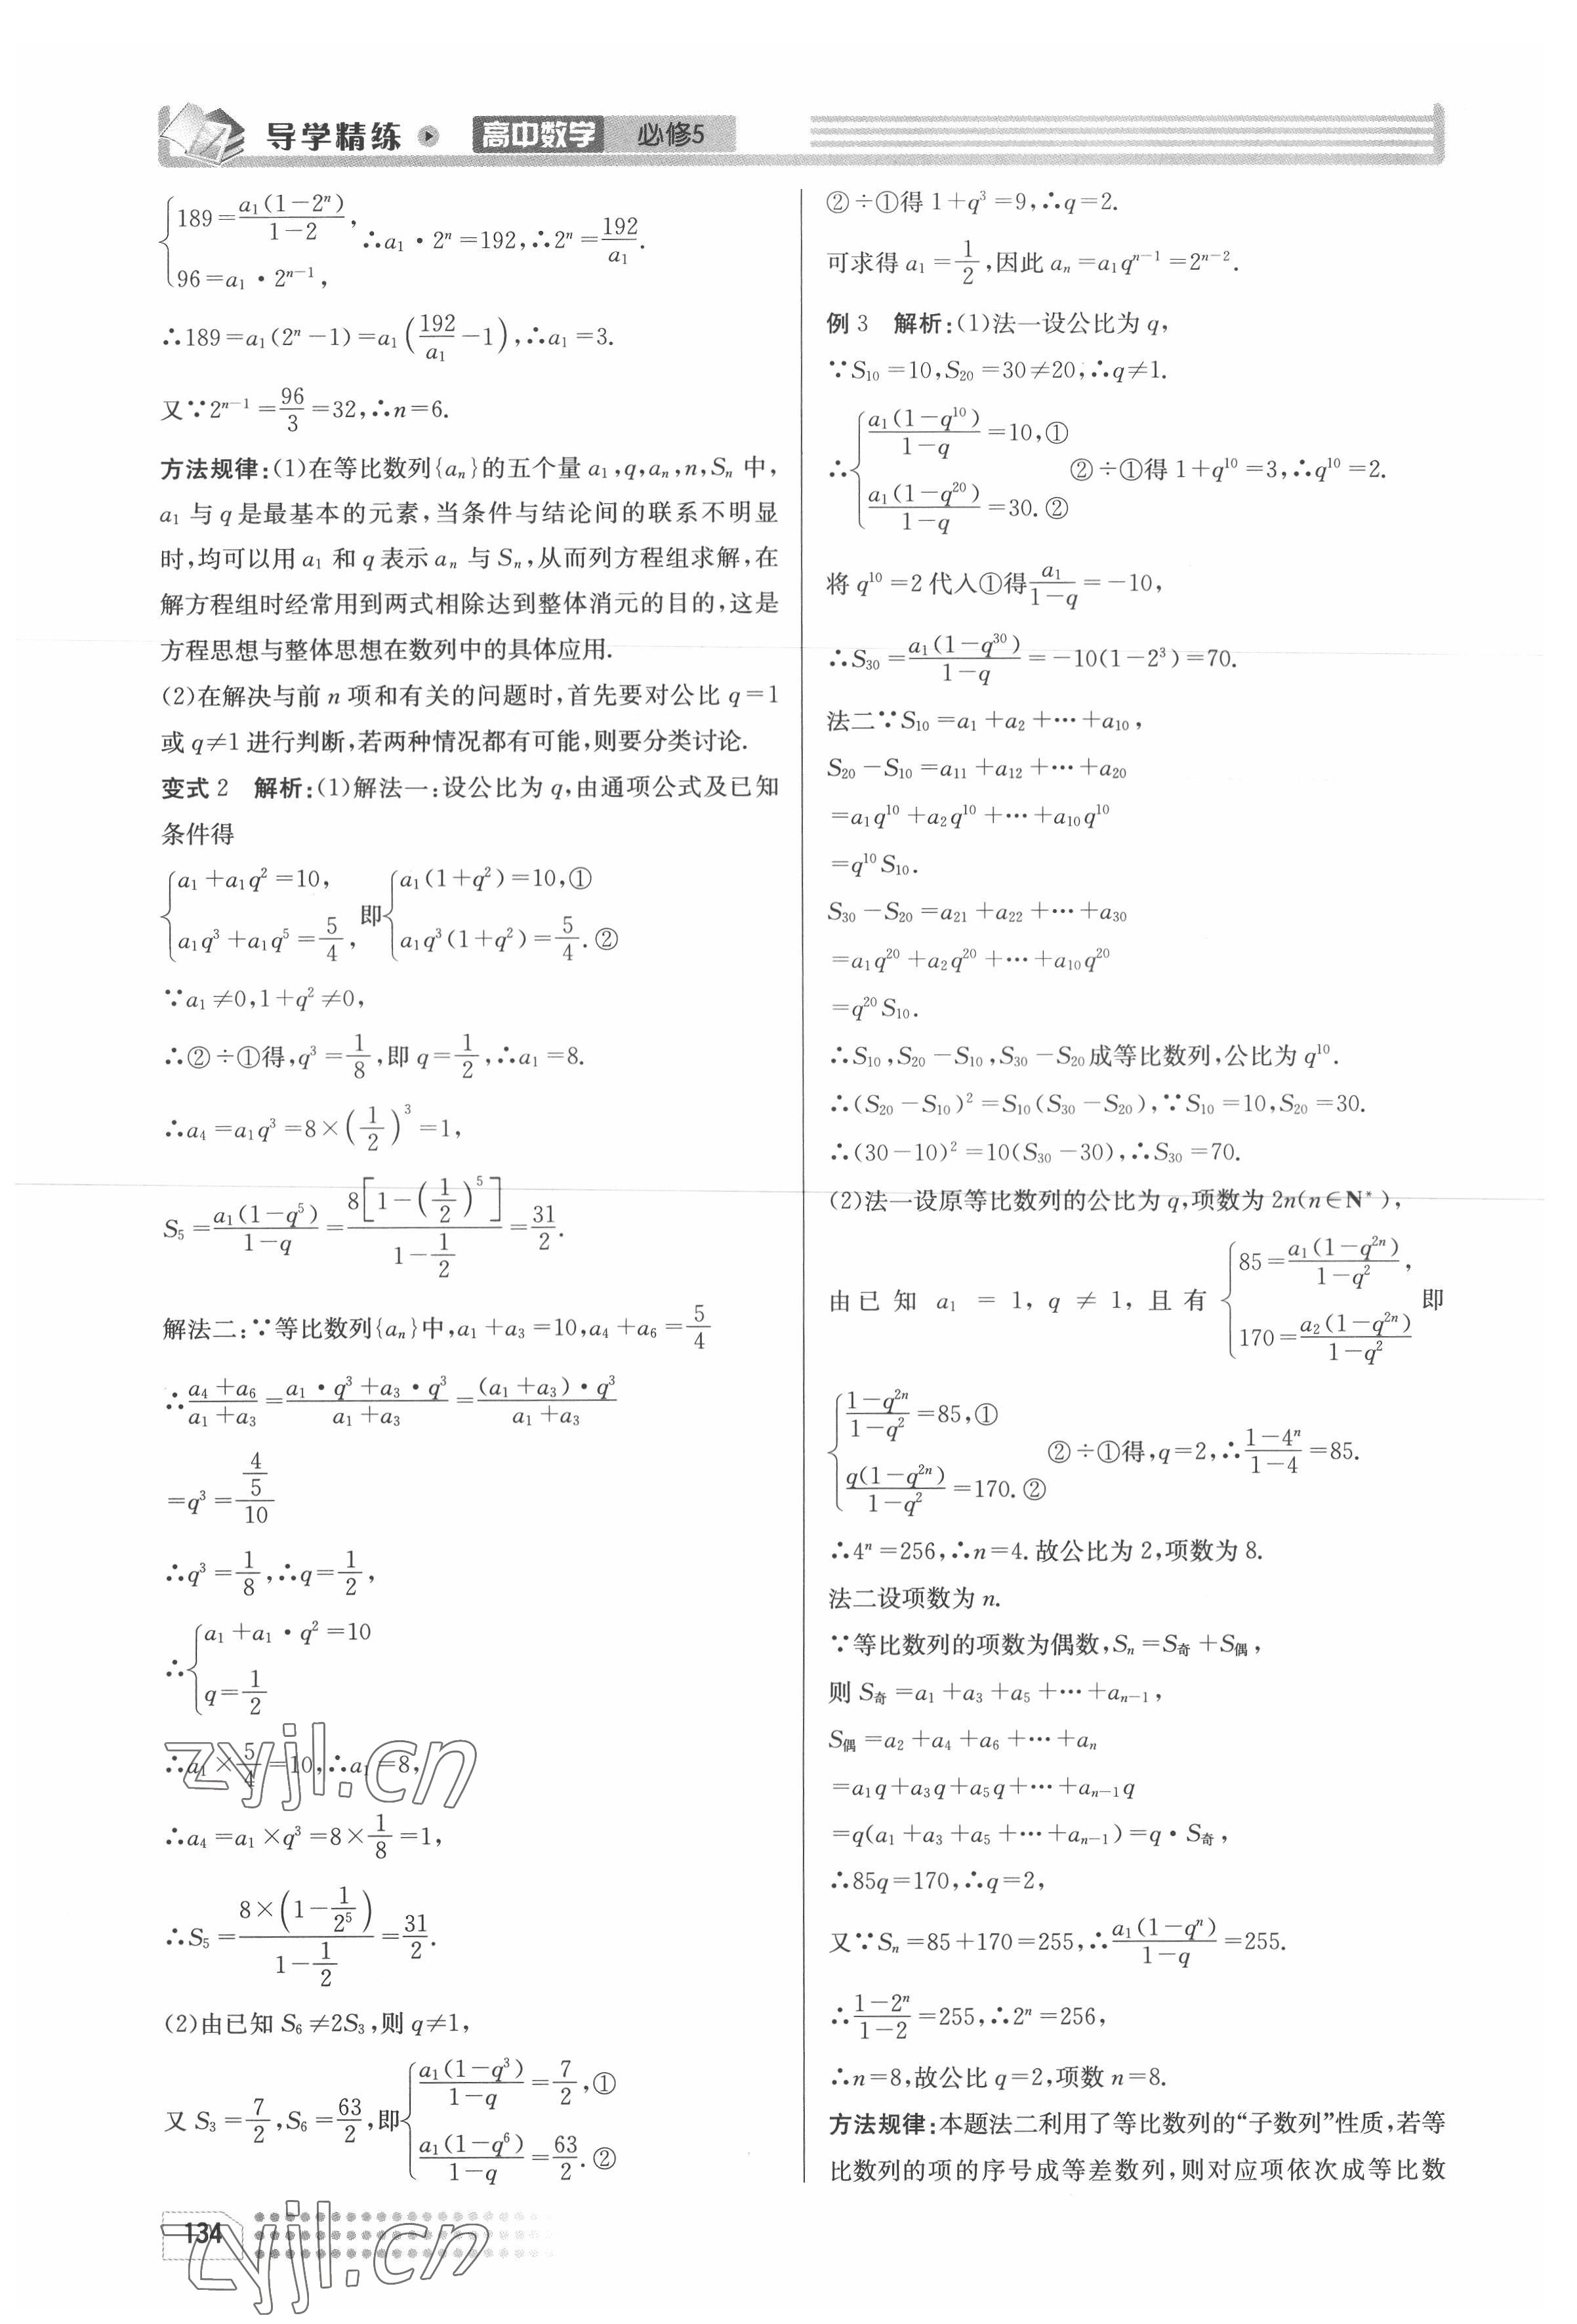 导学精练 高中数学 必修5
{189=a₁(1-2ⁿ)/(1-2), 96=a₁·2ⁿ⁻¹, ∴a₁·2ⁿ=192,∴2ⁿ=192/a₁.
∴189=a₁(2ⁿ-1)=a₁(192/a₁-1),∴a₁=3.
又∵2ⁿ⁻¹=96/3=32,∴n=6.
方法规律:(1)在等比数列{aₙ}的五个量a₁,q,aₙ,n,Sₙ中,
a₁与q是最基本的元素,当条件与结论间的联系不明显
时,均可以用a₁和q表示aₙ与Sₙ,从而列方程组求解,在
解方程组时经常用到两式相除达到整体消元的目的,这是
方程思想与整体思想在数列中的具体应用.
(2)在解决与前n项和有关的问题时,首先要对公比q=1
或q≠1进行判断,若两种情况都有可能,则要分类讨论.
变式2 解析:(1)解法一:设公比为q,由通项公式及已知
条件得
{a₁+a₁q²=10, a₁q³+a₁q⁵=5/4, 即{a₁(1+q²)=10,① a₁q³(1+q²)=5/4.②
∵a₁≠0,1+q²≠0,
∴②÷①得,q³=1/8,即q=1/2,∴a₁=8.
∴a₄=a₁q³=8×(1/2)³=1,
S₅=a₁(1-q⁵)/(1-q)=8[1-(1/2)⁵]/(1-1/2)=31/2.
解法二:∵等比数列{aₙ}中,a₁+a₃=10,a₄+a₆=5/4
∴(a₄+a₆)/(a₁+a₃)=(a₁·q³+a₃·q³)/(a₁+a₃)=(a₁+a₃)·q³/(a₁+a₃)
=q³=(4/5)/10
∴q³=1/8,∴q=1/2,
∴{a₁+a₁·q²=10 q=1/2
∴a₁×5/4=10,∴a₁=8,
∴a₄=a₁×q³=8×1/8=1,
∴S₅=8×(1-1/2⁵)/(1-1/2)=31/2.
(2)由已知S₆≠2S₃,则q≠1,
又S₃=7/2,S₆=63/2,即{a₁(1-q³)/(1-q)=7/2,① a₁(1-q⁶)/(1-q)=63/2.②
②÷①得1+q³=9,∴q=2.
可求得a₁=1/2,因此aₙ=a₁qⁿ⁻¹=2ⁿ⁻².
例3 解析:(1)法一设公比为q,
∵S₁₀=10,S₂₀=30≠20,∴q≠1.
∴{a₁(1-q¹⁰)/(1-q)=10,① a₁(1-q²⁰)/(1-q)=30.② ②÷①得1+q¹⁰=3,∴q¹⁰=2.
将q¹⁰=2代入①得a₁/(1-q)=-10,
∴S₃₀=a₁(1-q³⁰)/(1-q)=-10(1-2³)=70.
法二∵S₁₀=a₁+a₂+…+a₁₀,
S₂₀-S₁₀=a₁₁+a₁₂+…+a₂₀
=a₁q¹⁰+a₂q¹⁰+…+a₁₀q¹⁰
=q¹⁰S₁₀.
S₃₀-S₂₀=a₂₁+a₂₂+…+a₃₀
=a₁q²⁰+a₂q²⁰+…+a₁₀q²⁰
=q²⁰S₁₀.
∴S₁₀,S₂₀-S₁₀,S₃₀-S₂₀成等比数列,公比为q¹⁰.
∴(S₂₀-S₁₀)²=S₁₀(S₃₀-S₂₀),∵S₁₀=10,S₂₀=30.
∴(30-10)²=10(S₃₀-30),∴S₃₀=70.
(2)法一设原等比数列的公比为q,项数为2n(n∈N*),
由已知a₁=1,q≠1,且有{85=a₁(1-q²ⁿ)/(1-q²), 170=a₂(1-q²ⁿ)/(1-q²) 即
{(1-q²ⁿ)/(1-q²)=85,① q(1-q²ⁿ)/(1-q²)=170.② ②÷①得,q=2,∴(1-4ⁿ)/(1-4)=85.
∴4ⁿ=256,∴n=4.故公比为2,项数为8.
法二设项数为n.
∵等比数列的项数为偶数,Sₙ=S奇+S偶,
则S奇=a₁+a₃+a₅+…+aₙ₋₁,
S偶=a₂+a₄+a₆+…+aₙ
=a₁q+a₃q+a₅q+…+aₙ₋₁q
=q(a₁+a₃+a₅+…+aₙ₋₁)=q·S奇,
∴85q=170,∴q=2,
又∵Sₙ=85+170=255,∴a₁(1-qⁿ)/(1-q)=255.
∴(1-2ⁿ)/(1-2)=255,∴2ⁿ=256,
∴n=8,故公比q=2,项数n=8.
方法规律:本题法二利用了等比数列的“子数列”性质,若等
比数列的项的序号成等差数列,则对应项依次成等比数
134
zyjl.cn
zyjl.cn